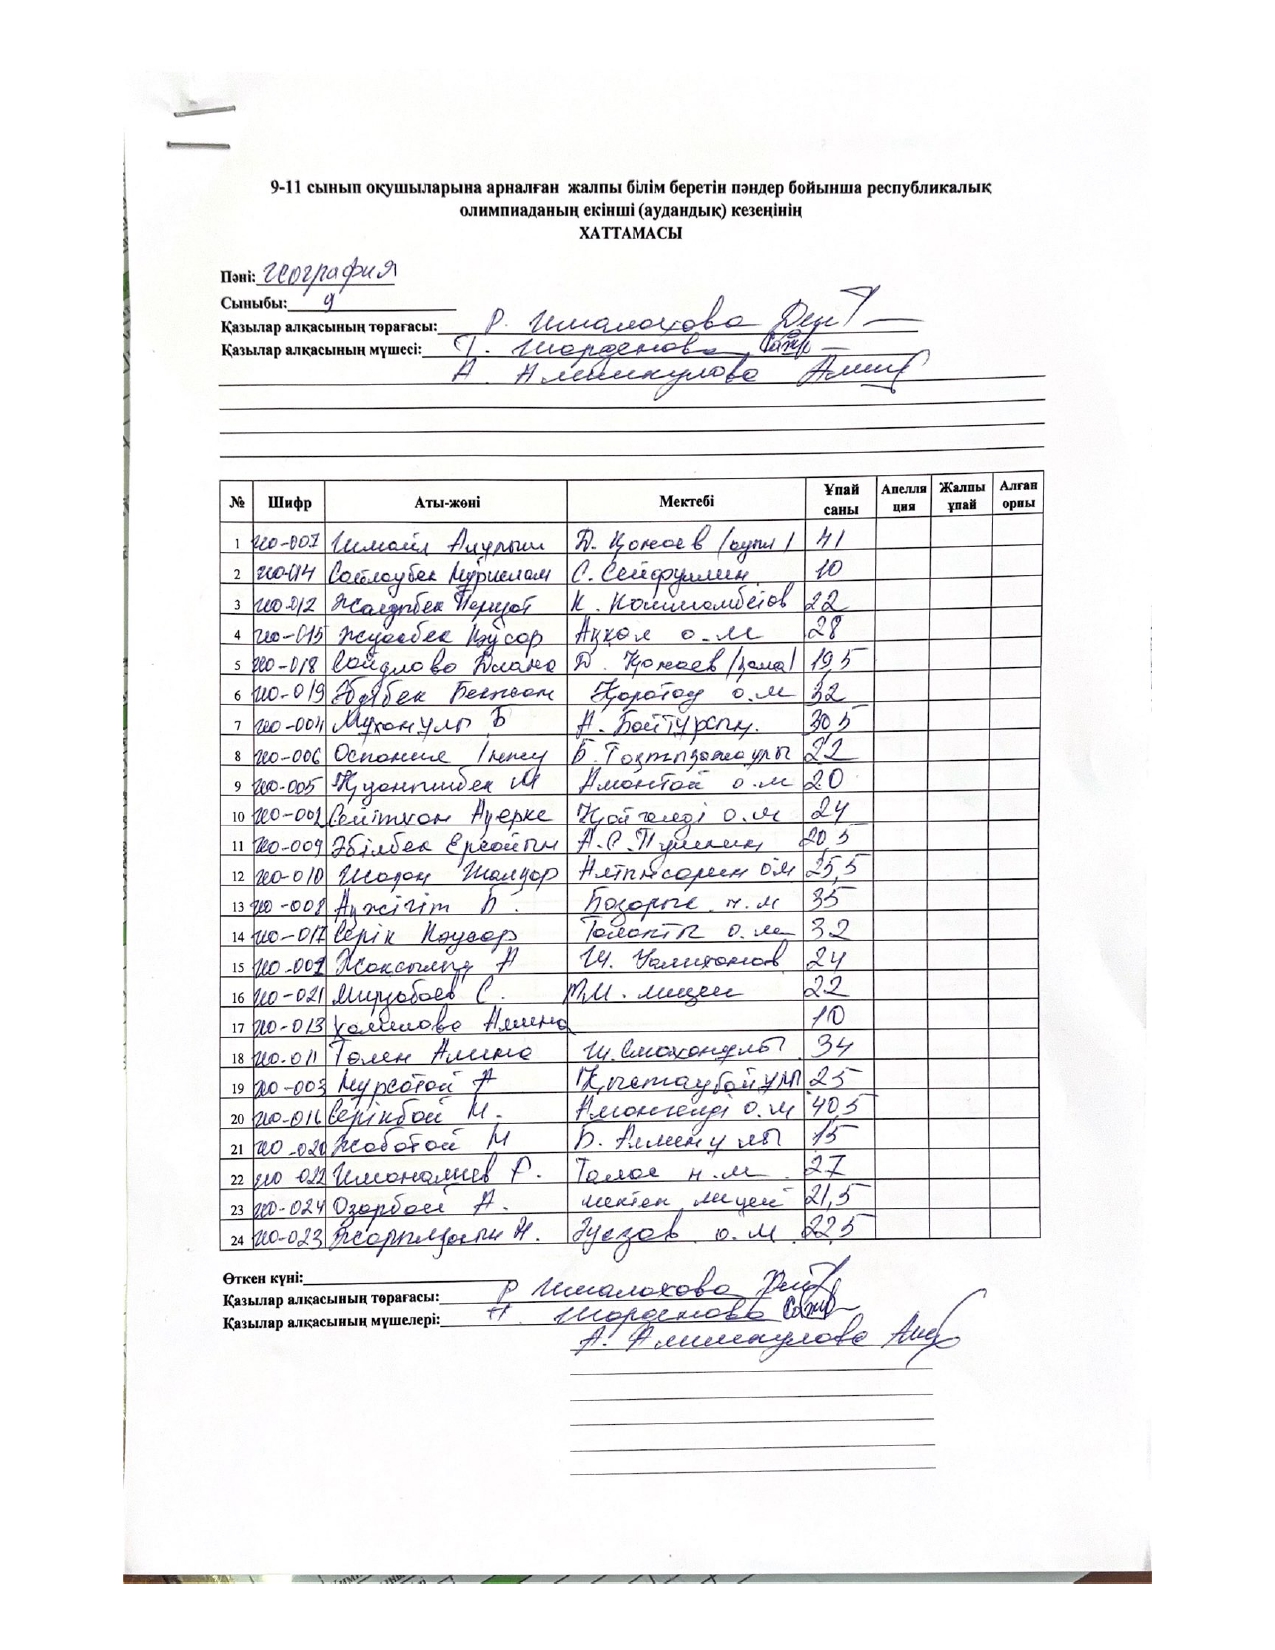 9-11 сынып оқушыларына арналған жалпы білім беретін пәндер бойынша республикалық
олимпиаданың екінші (аудандық) кезеңінің
ХАТТАМАСЫ
Пәні: география
Сыныбы: 9
Қазылар алқасының төрағасы: Р. Исмалахова
Қазылар алқасының мүшесі: Шарденова
А. Алимкулова
№ Шифр Аты-жөні Мектебі Ұпай саны Апелляция Жалпы ұпай Алған орны
1 гео-007 Исмаил Ақүрпиш Д. Қонаев /ауыл/ 41
2 гео-014 Сайлаубек Нұрислам С. Сейфуллин 10
3 гео-012 К. Қойшыманбетов 22
4 гео-015 Жүсібек Кәусар Ақкөл о.м 28
5 гео-018 Сайдлаева Диана Д. Қонаев /қала/ 19,5
6 гео-019 Әбдібек Бекжан Қаратау о.м 32
7 гео-004 Мұқанұлы Б А. Байтұрсын. 30,5
8 гео-006 Оспанәлі Б. Тоқтықожаұлы 22
9 гео-005 Қуанышбек М Амантай о.м 20
10 гео-002 Сейтхан Ауерке о.м 24
11 гео-009 Әбілбек Ерсайын А.С.Пушкин 20,5
12 гео-010 Шалқар Алтынсарин о.м 25,5
13 гео-008 Ақжігіт Б. н.м 35
14 гео-017 Серік Кәусар Талапты о.м 32
15 гео-001 Жақсылық А Ш. Уалиханов 24
16 гео-021 Мырзабаев С. Т.М. лицей 22
17 гео-013 Халилова Алина 10
18 гео-011 Төлен Алина Ш. Смаханұлы 34
19 гео-003 Нұрсатай А Қыстаубайұлы 25
20 гео-016 Серікбай М. Амангелді о.м 40,5
21 гео-020 Жаботай М Б. Әлімқұлы 15
22 гео-022 Исманалиев Р. Талас н.м 27
23 гео-024 Озарбай А. мектеп лицей 21,5
24 гео-023 Жарылқасын Н. Әуезов о.м 22,5
Өткен күні:
Қазылар алқасының төрағасы: Р Исмалахова
Қазылар алқасының мүшелері: Шарденова
А. Алимкулова